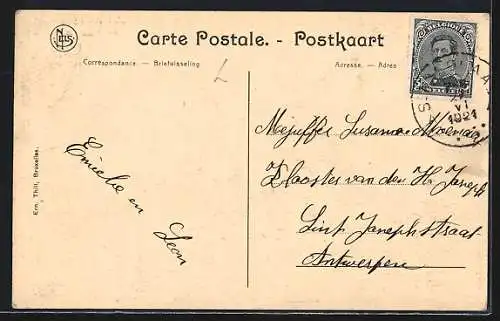 Carte Postale. - Postkaart
Correspondance. — Briefwisseling
Adresse. — Adres
BELGIQUE
VI
1921
Mejuffer Susanna
Klooster van den H. Joseph
Sint Josephstraat
Antwerpen
Emielie en
Leon
Ern. Thill, Bruxelles.